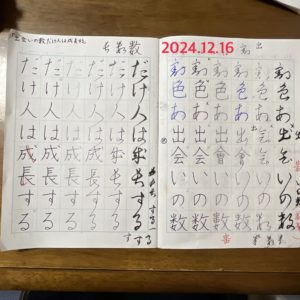 2024.12.16
割 出
割色あ出会いの数
割色あ出会いの数
割色あ出会いの数
割色あ出会いの数
割色あ出会いの数
割色あ出会いの数
数
出会いの数だけ人は成長する
だけ人は成長する
だけ人は成長する
だけ人は成長する
だけ人は成長する
だけ人は成長する
だけ人は成長する